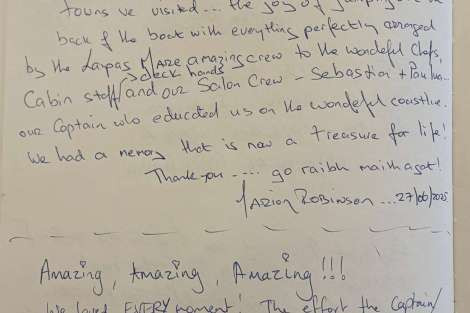 towns we visited ... the joy of jumping
back of the boat with everything perfectly arranged
by the amazing crew to the wonderful Chefs,
deck hands
Cabin staff and our Salon Crew - Sebastian +
our Captain who educated us on the wonderful coastline.
We had a memory that is now a treasure for life!
Thank-you .... go raibh maith agat!
Marion Robinson ... 27/06/2025
Amazing, Amazing, Amazing!!!
We loved EVERY moment! The effort the Captain/